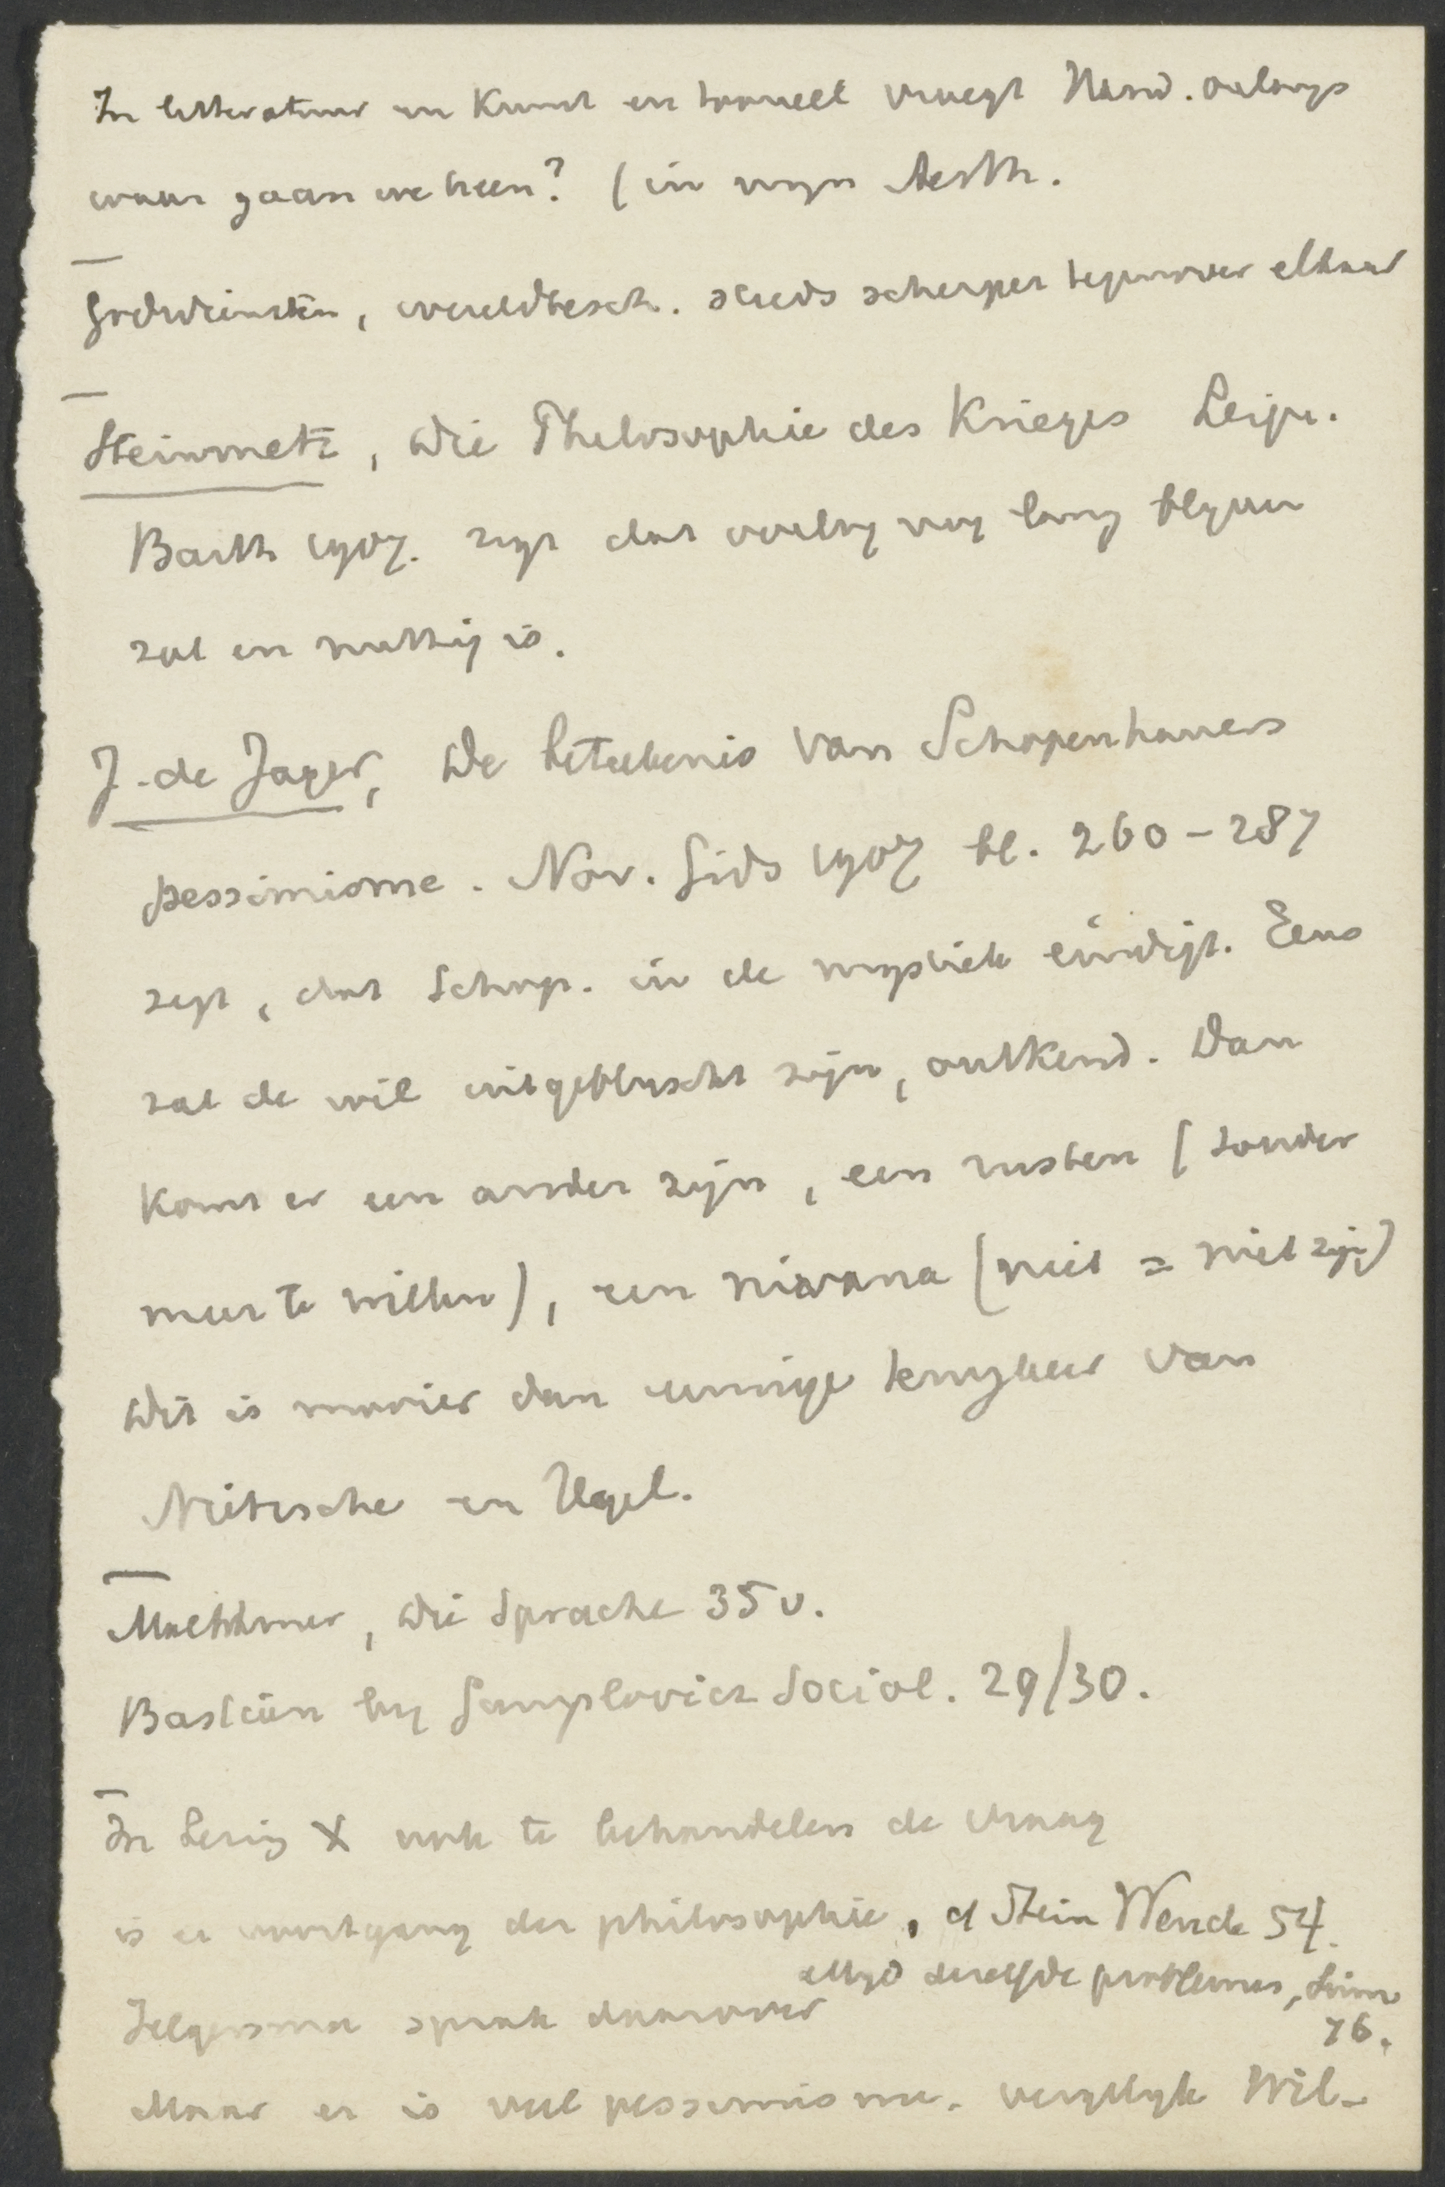 In litteratuur en Kunst en tooneel vraagt Hand. onlangs
waar gaan we heen? (in mijn Aesth.
Godsdiensten, wereldbesch. steeds scherper tegenover elkaar
Steinmetz, Die Philosophie des Krieges Leipz.
Barth 1907. zegt dat oorlog nog lang blijven
zal en nuttig is.
J. de Jager, De beteekenis van Schopenhauers
pessimisme. Nov. Gids 1907 bl. 260-287
zegt, dat Schop. in de mystiek eindigt. Eens
zal de wil uitgebluscht zijn, ontkend. Dan
komt er een ander zijn, een rusten (zonder
meer te willen), een nirvana (niet = niet zijn)
Dit is mooier dan eeuwige terugkeer van
Nietzsche en Hegel.
Mauthner, Die Sprache 35 v.
Bastian by Gumplovicz Sociol. 29/30.
In Lezing X ook te behandelen de vraag
is er voortgang der philosophie, cf Stein Wende 54.
altyd dezelfde problemen, Sim
76.
Jelgersma sprak daarover
Maar er is veel pessimisme. vergelyk Wil-